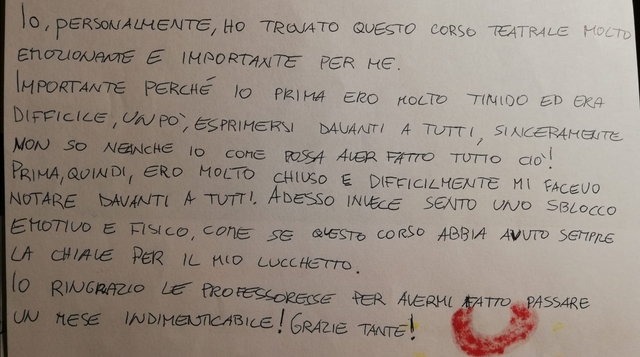 IO, PERSONALMENTE, HO TROVATO QUESTO CORSO TEATRALE MOLTO
EMOZIONANTE E IMPORTANTE PER ME.
IMPORTANTE PERCHÉ IO PRIMA ERO MOLTO TIMIDO ED ERA
DIFFICILE, UN PO', ESPRIMERSI DAVANTI A TUTTI, SINCERAMENTE
NON SO NEANCHE IO COME POSSA AVER FATTO TUTTO CIÒ!
PRIMA, QUINDI, ERO MOLTO CHIUSO E DIFFICILMENTE MI FACEVO
NOTARE DAVANTI A TUTTI. ADESSO INVECE SENTO UNO SBLOCCO
EMOTIVO E FISICO, COME SE QUESTO CORSO ABBIA AVUTO SEMPRE
LA CHIAVE PER IL MIO LUCCHETTO.
IO RINGRAZIO LE PROFESSORESSE PER AVERMI FATTO PASSARE
UN MESE INDIMENTICABILE! GRAZIE TANTE!